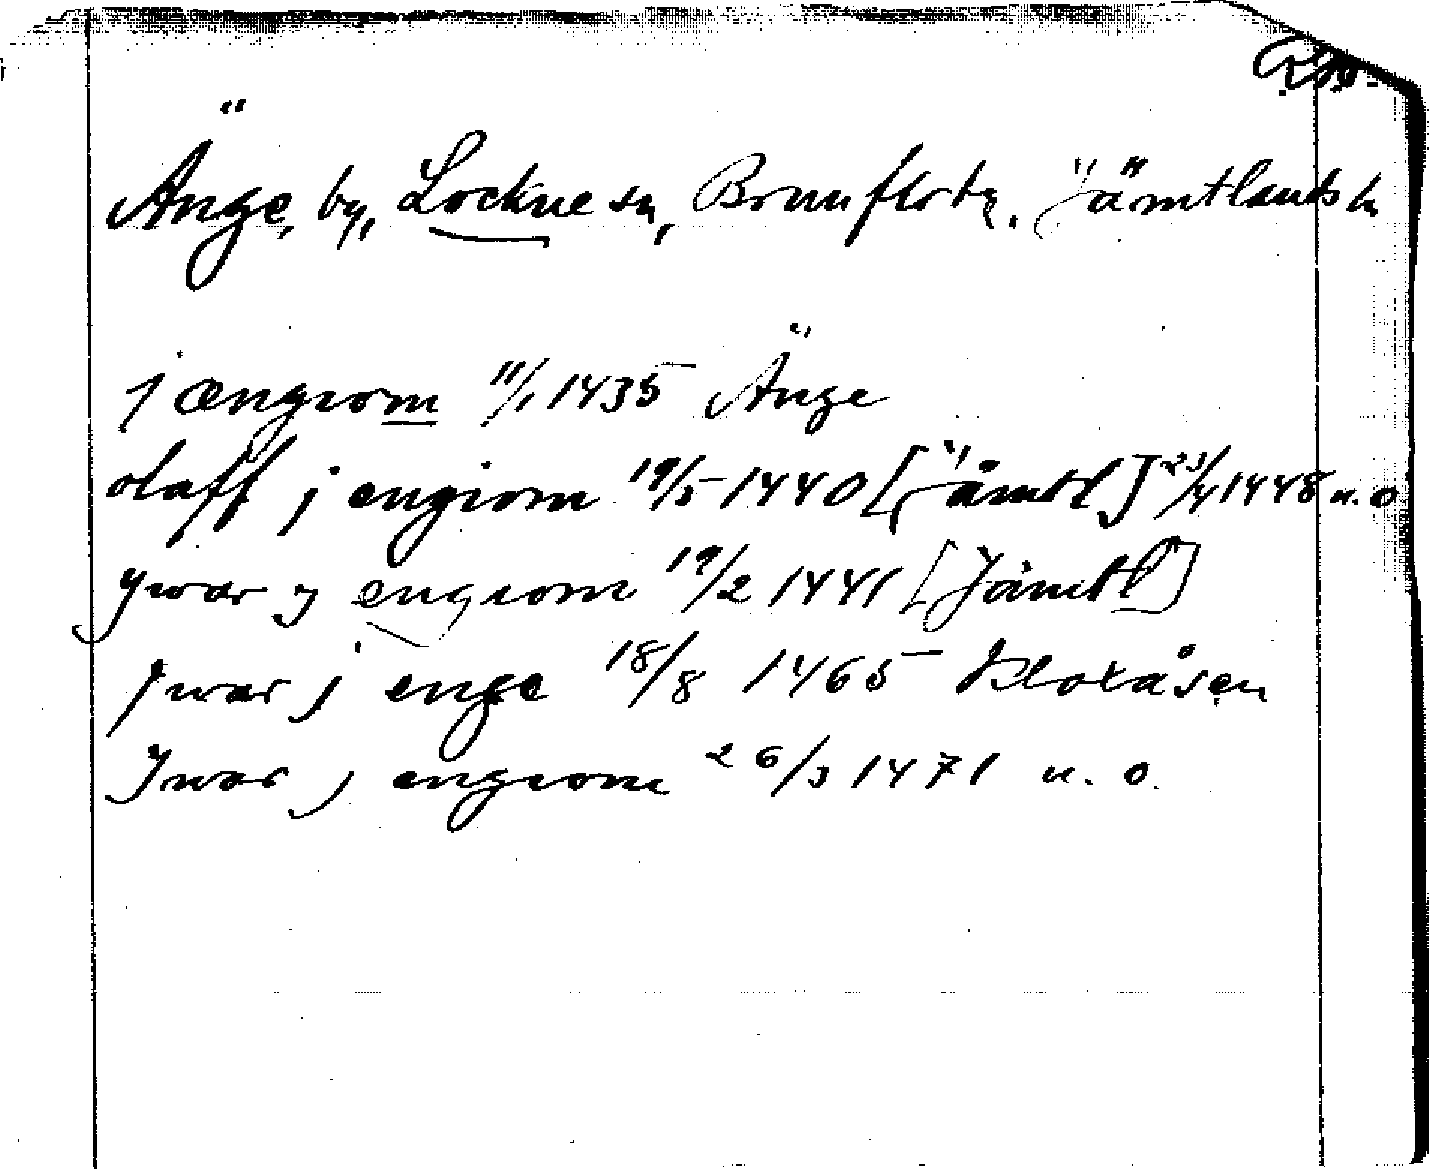 Änge, by, Lockne sn, Brunflo tg. Jämtlands h
j ængiom 11/1 1435 Änge
olaff j engiom 19/5 1440 [Jämtl] 23/4 1448 u. o
ywar y engiom 19/2 1441 [Jämtl]
Jwar j enge 18/8 1465 Kloxåsen
Jwar j engiom 26/3 1471 u. o.